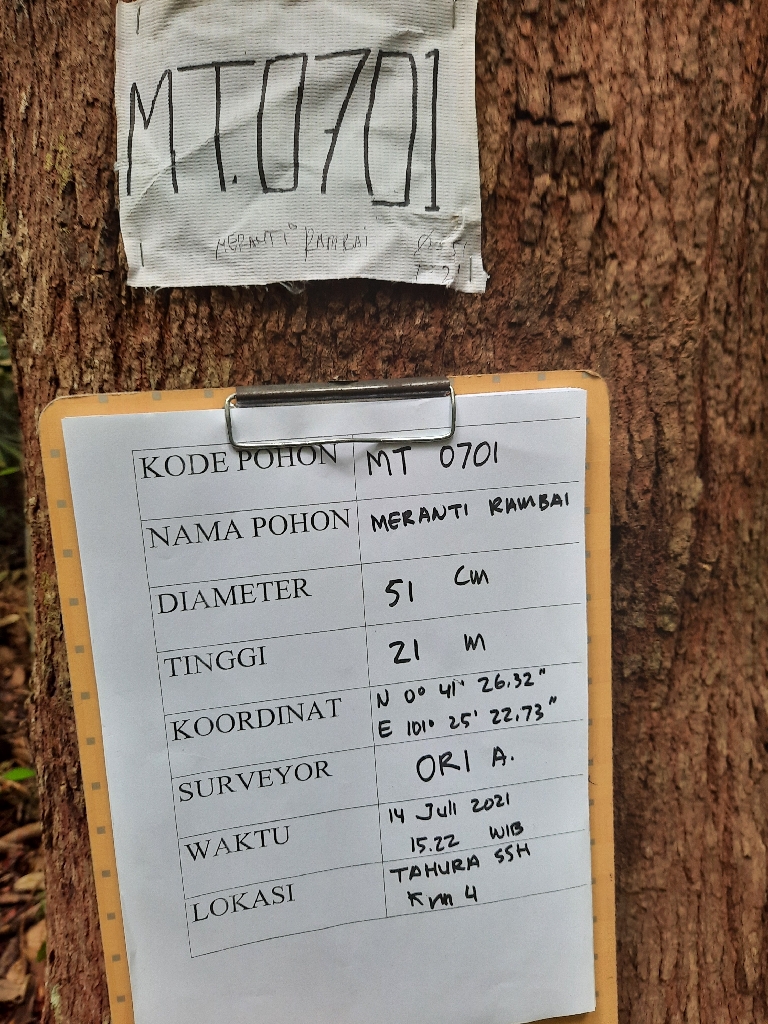 MT.0701
MERANTI RAMBAI
KODE POHON MT 0701
NAMA POHON MERANTI RAMBAI
DIAMETER 51 Cm
TINGGI 21 m
KOORDINAT N 0° 41' 26.32"
E 101° 25' 22.73"
SURVEYOR ORI A.
WAKTU 14 Juli 2021
15.22 WIB
LOKASI TAHURA SSH
Km 4